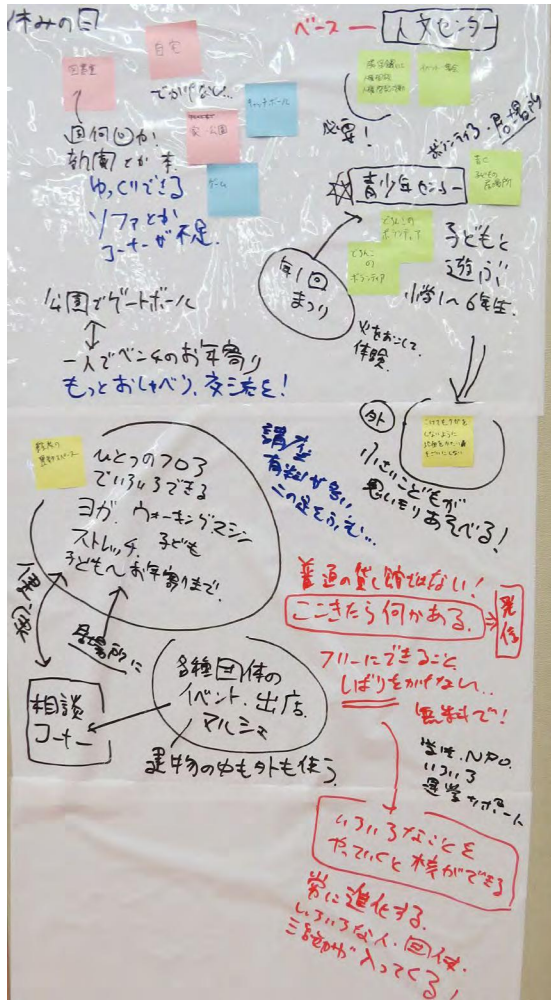 休みの日
図書室
自宅
でかけない…
キャッチボール
家・公園
ゲーム
週何回か
新聞とか本
ゆっくりできる
ソファとか
コーナーが不足.
公園でゲートボール
一人でベンチのお年寄り
もっとおしゃべり、交流を!
ベース — 人文センター
イベント・集会
必要!
ボランティア・居場所
青少年センター
子どもの
居場所
どろんこの
ボランティア
どろんこ
の
ボランティア
年1回
まつり
子どもと
遊ぶ
小学1〜6年生.
火をおこして
体験.
外
小さい子どもが
思いきりあそべる!
ひとつのフロア
でいろいろできる
ヨガ. ウォーキングマシン
ストレッチ. 子ども
子ども〜お年寄りまで.
講座
有料が多い
健康
居場所に
相談
コーナー
各種団体の
イベント. 出店.
マルシェ
建物の中も外も使う.
普通の貸し館ではない!
ここきたら何かある.
⇒発信
フリーにできること
しばりをかけない..
無料で!
学生. NPO.
いろいろ
運営サポート
いろいろなことを
やっていくと棒ができる
常に進化する.
いろいろな人. 団体.
入ってくる!